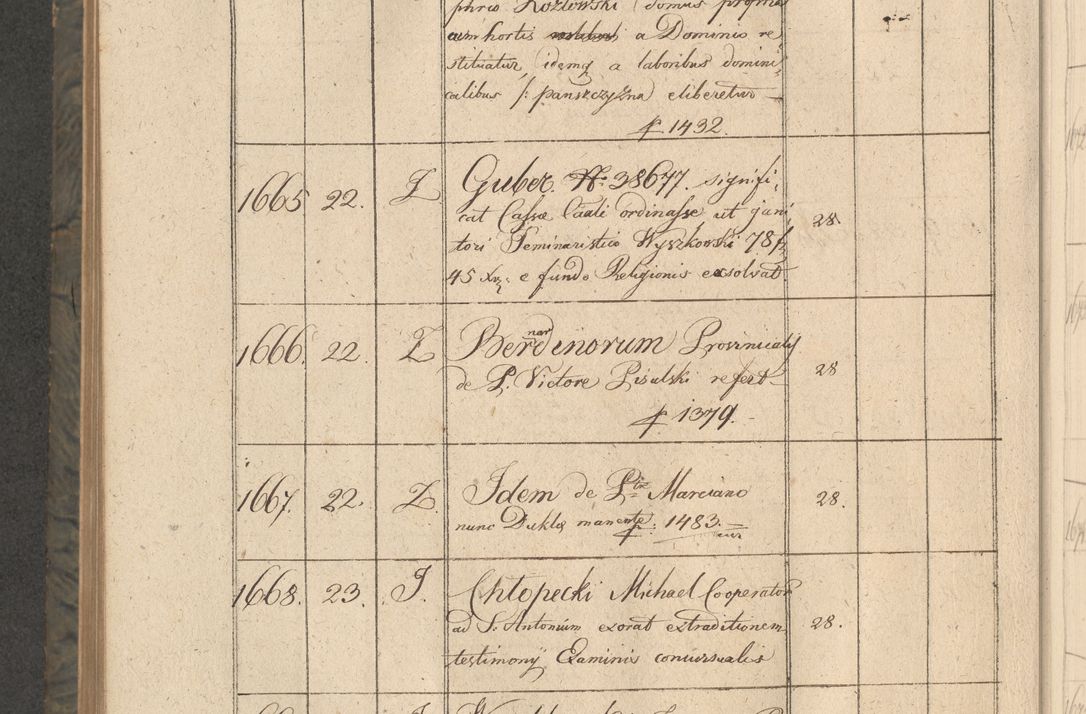 phreo Kozłowski (domus propria
cum hortis a Dominio re
stituatur, idemq a laboribus domini,
calibus /: panszczyzna) eliberetur —
f. 1432.
1665 22. J Guber. N: 38677. signifi,
cat Cassæ Caali ordinasse ut jani
tori Seminaristico Wyszkowski 78 f 28.
45 Xr: e fundo Religionis exsolvat
1666. 22. Z Bernardinorum Provincialis
de P. Victore Pisulski refert — 28
f. 1379.
1667. 22. Z. Idem de Ptre Marciano 28.
nunc Duklæ manente f: 1483. =
1668. 23. J. Chłopecki Michael Cooperator
ad S. Antonium exorat extraditionem 28.
testimonÿ Examinis concursualis